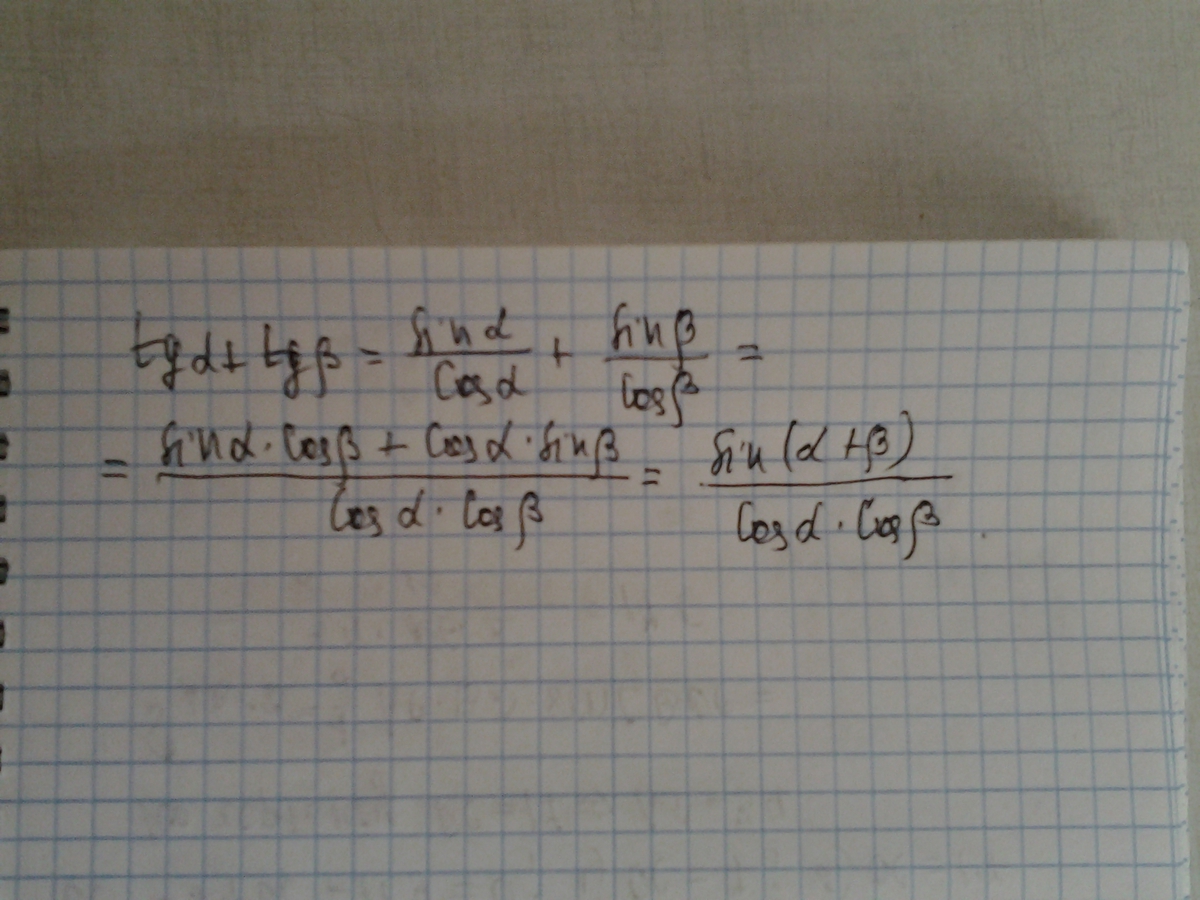 tgα + tgβ = sinα/cosα + sinβ/cosβ =
= (sinα · cosβ + cosα · sinβ)/(cosα · cosβ) = sin(α + β)/(cosα · cosβ).